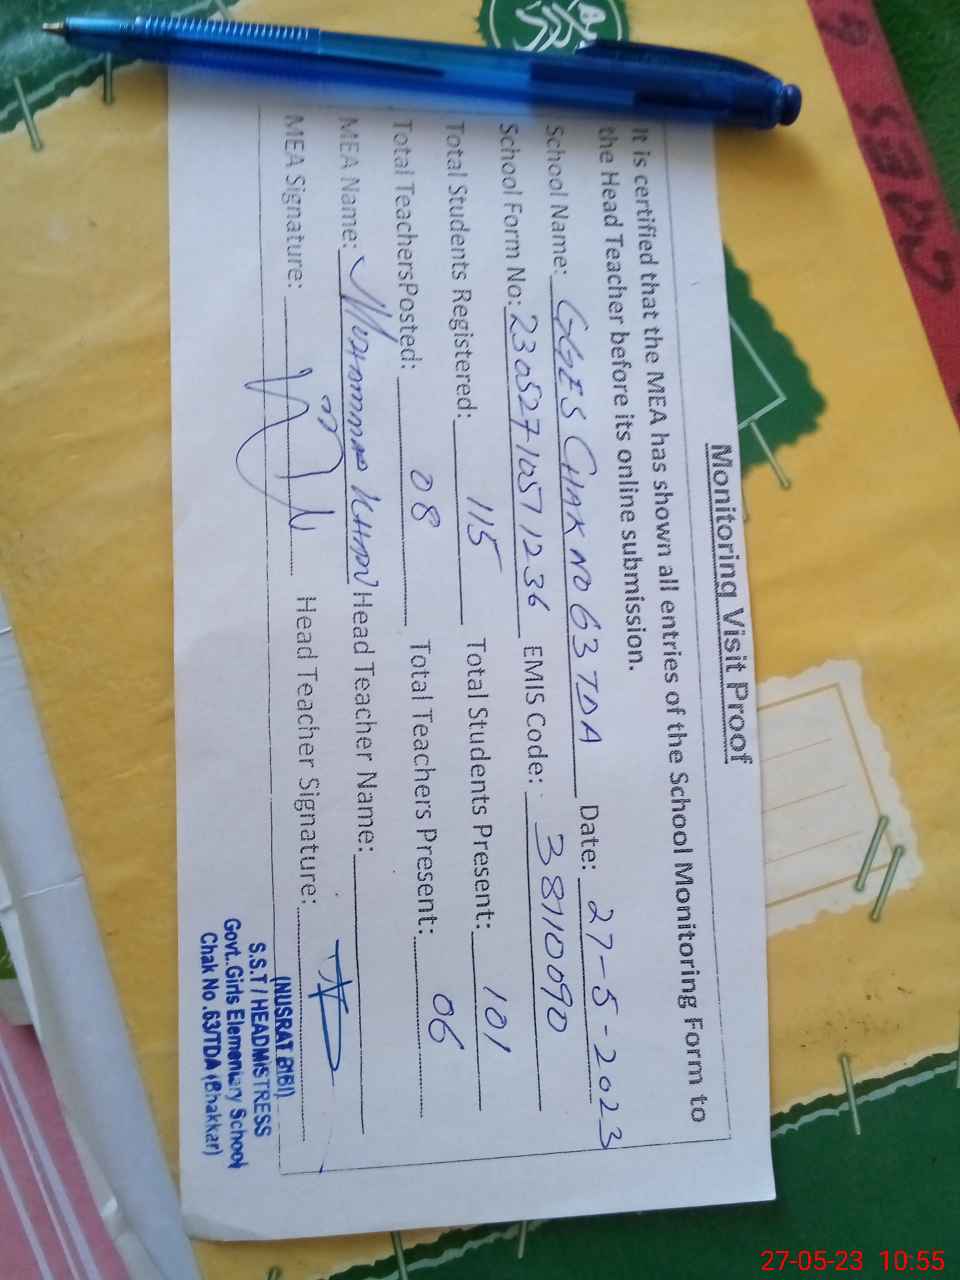 Monitoring Visit Proof
It is certified that the MEA has shown all entries of the School Monitoring Form to
the Head Teacher before its online submission.
School Name: GGES CHAK NO 63 TDA Date: 27-5-2023
School Form No: 23052710571236 EMIS Code: 38110090
Total Students Registered: 115 Total Students Present: 101
Total TeachersPosted: 08 Total Teachers Present: 06
MEA Name: Muhammad KHAN Head Teacher Name:
MEA Signature: Head Teacher Signature:
(NUSRAT BIBI)
S.S.T / HEADMISTRESS
Govt.Girls Elementary School
Chak No.63/TDA (Bhakkar)
27-05-23 10:55